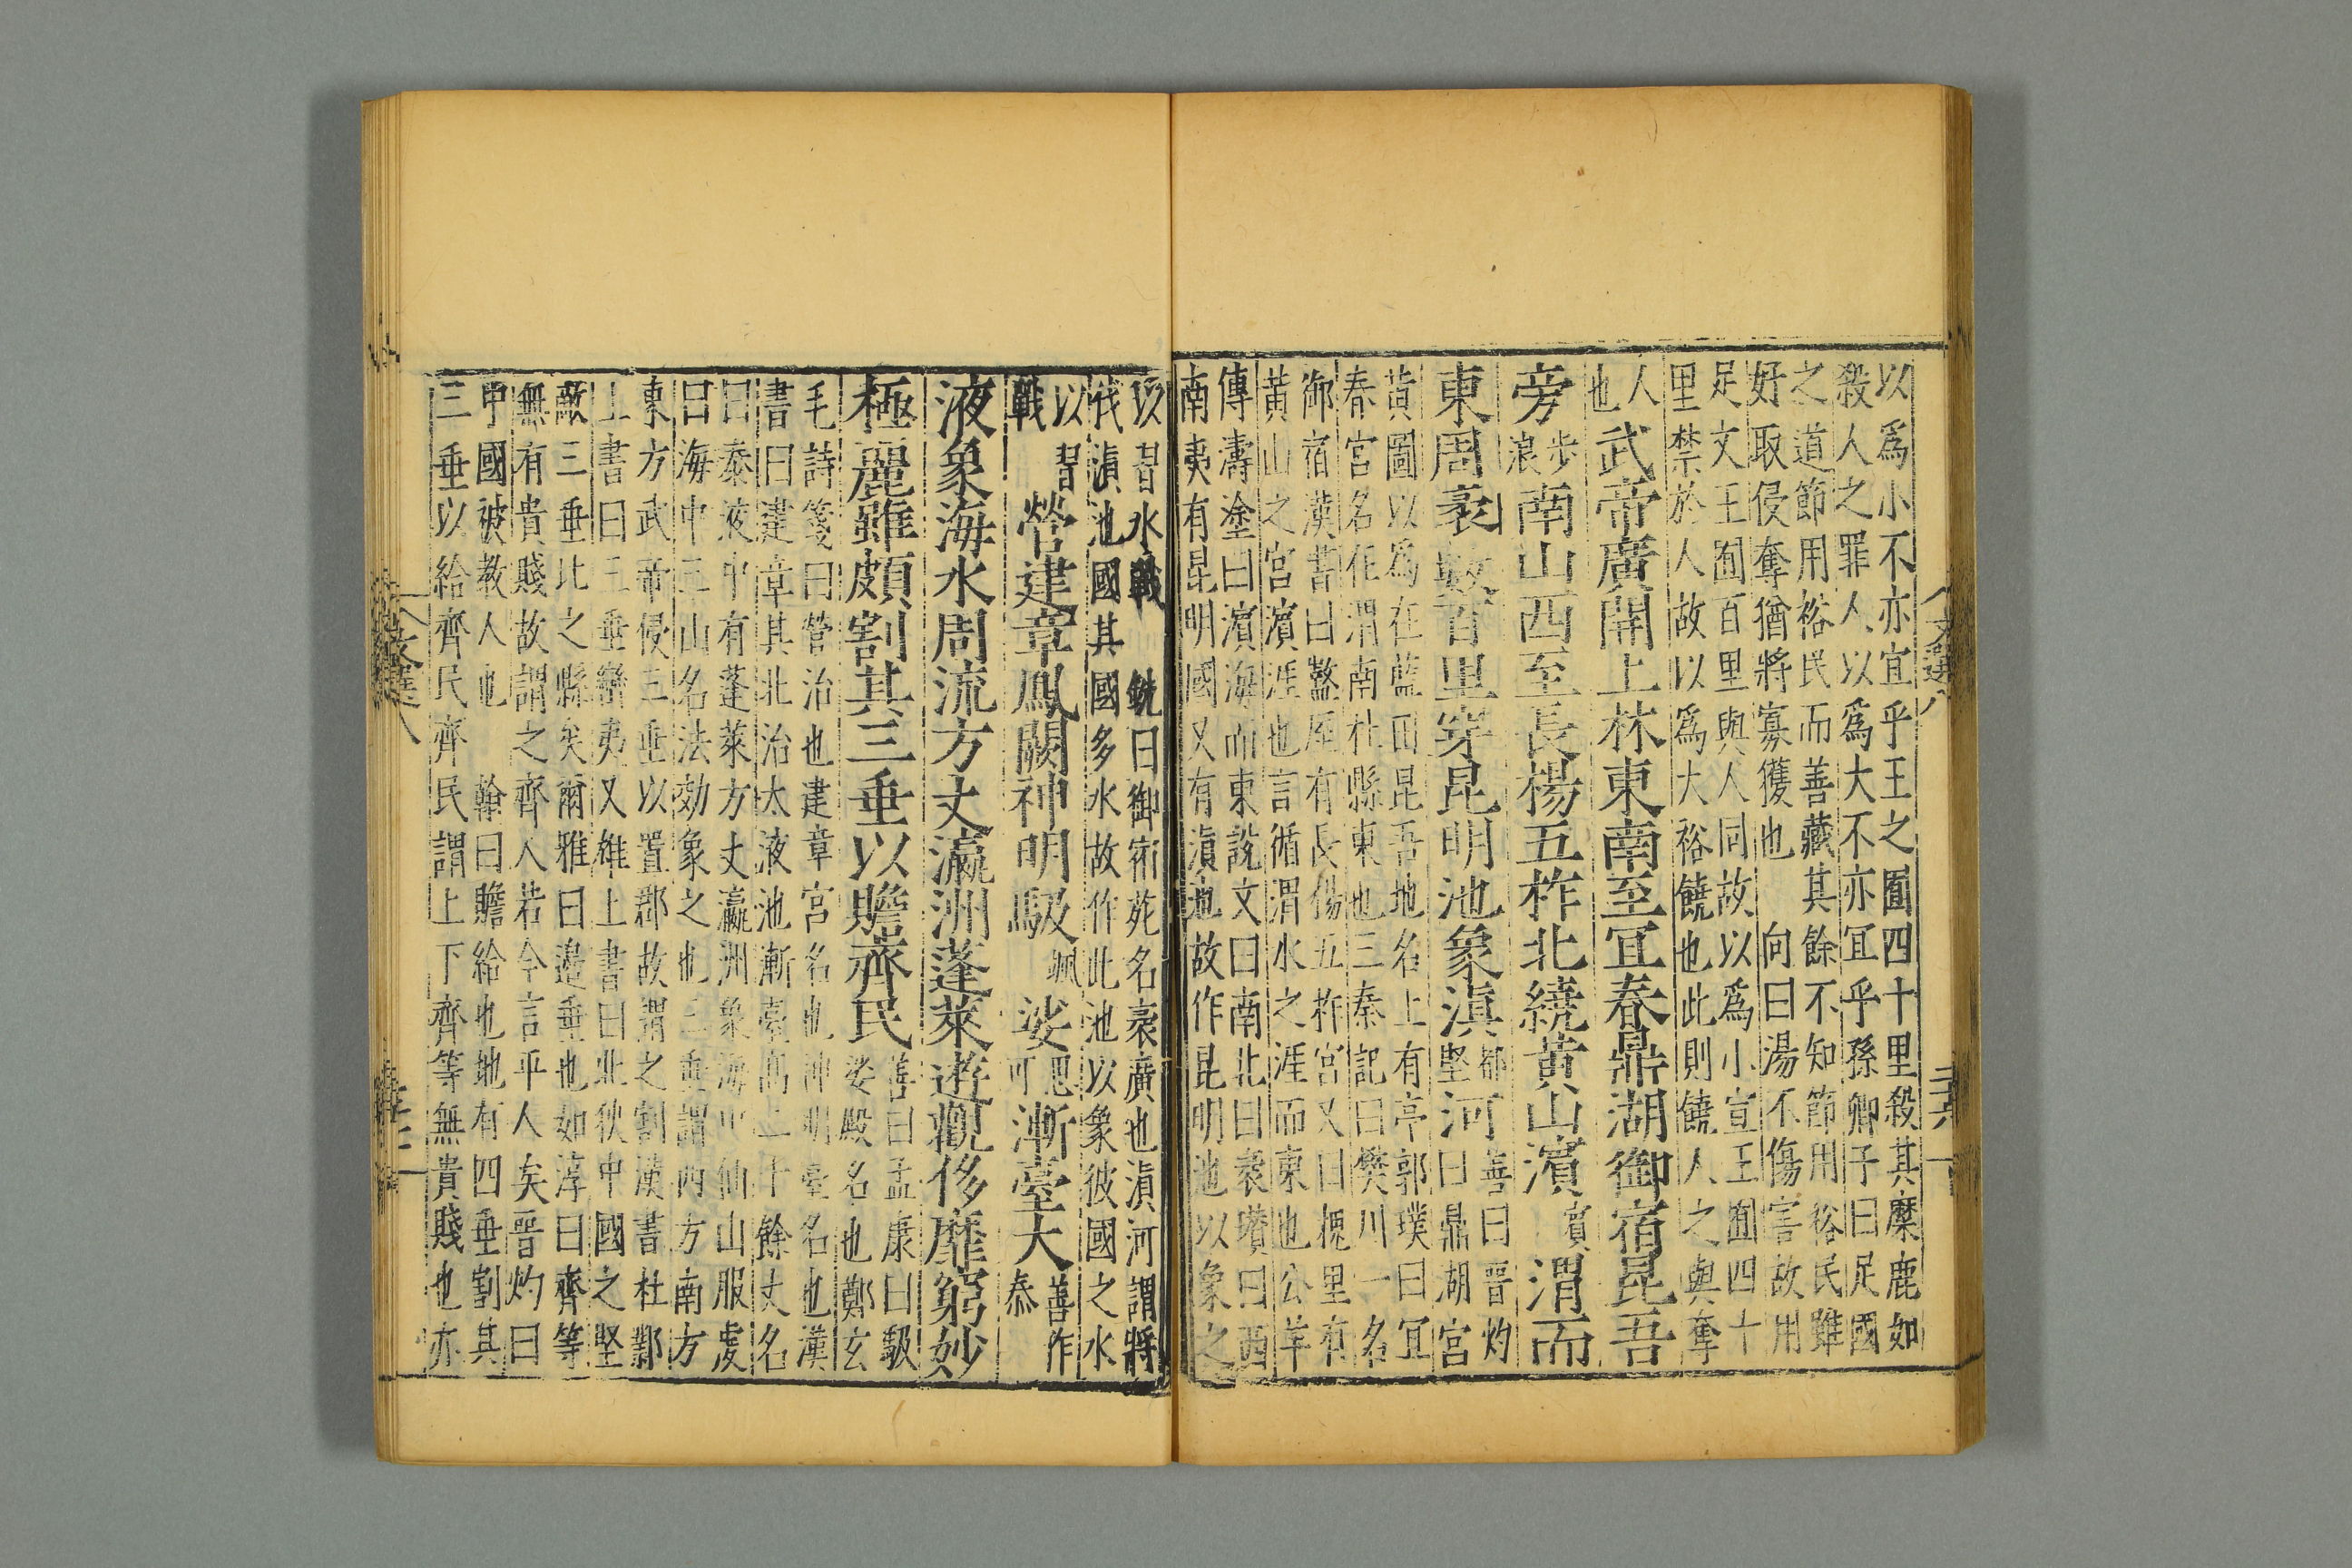 以爲小不亦宜乎王之囿四十里殺其麋鹿如
殺人之罪人以爲大不亦宜乎孫卿子曰足國
之道節用裕民而善藏其餘不知節用裕民雖
好取侵奪猶將寡獲也 向曰湯不傷害故用
足文王囿百里與人同故以爲小宣王囿四十
里禁於人故以爲大裕饒也此則饒人之與奪
人
也
武帝廣開上林東南至宜春鼎湖御宿昆吾
旁步
浪南山西至長楊五柞北繞黄山濱賔渭而
東周袤數百里穿昆明池象滇都
堅河善曰晋灼
曰鼎胡宮
黄圖以爲在藍田昆吾地名上有亭郭璞曰宜
春宮名在渭南杜縣東也三秦記曰樊川一名
御宿漢書曰盩厔有長楊五柞宮又曰槐里有
黄山之宮濱涯也言循渭水之涯而東也公羊
傳濤塗曰濱海而東說文曰南北曰袤瓚曰西
南夷有昆明國又有滇池故作昆明池以象之
以習水戰 銑曰御術苑名袤廣也滇河謂將
伐滇池國其國多水故作此池以象彼國之水
以習
戰
營建章鳳闕神明馺颯娑思
可漸臺大善作
泰
液象海水周流方丈瀛洲蓬萊遊觀侈靡窮妙
極麗雖頗割其三垂以贍齊民善曰孟康曰馺
娑殿名也鄭玄
毛詩箋曰營治也建章宮名也神明臺名也漢
書曰建章其北治太液池漸臺高二十餘丈名
曰泰液中有蓬萊方丈瀛洲象海中仙山服虔
曰海中三山名法効象之也三垂謂西方南方
東方武帝侵三垂以置郡故謂之割漢書杜鄴
上書曰三垂蠻夷又雄上書曰北狄中國之堅
敵三垂比之懸矣爾雅曰邊垂也如淳曰齊等
無有貴賤故謂之齊人若今言平人矣晋灼曰
中國被教人也 翰曰贍給也地有四垂割其
三垂以給齊民齊民謂上下齊等無貴賤也亦